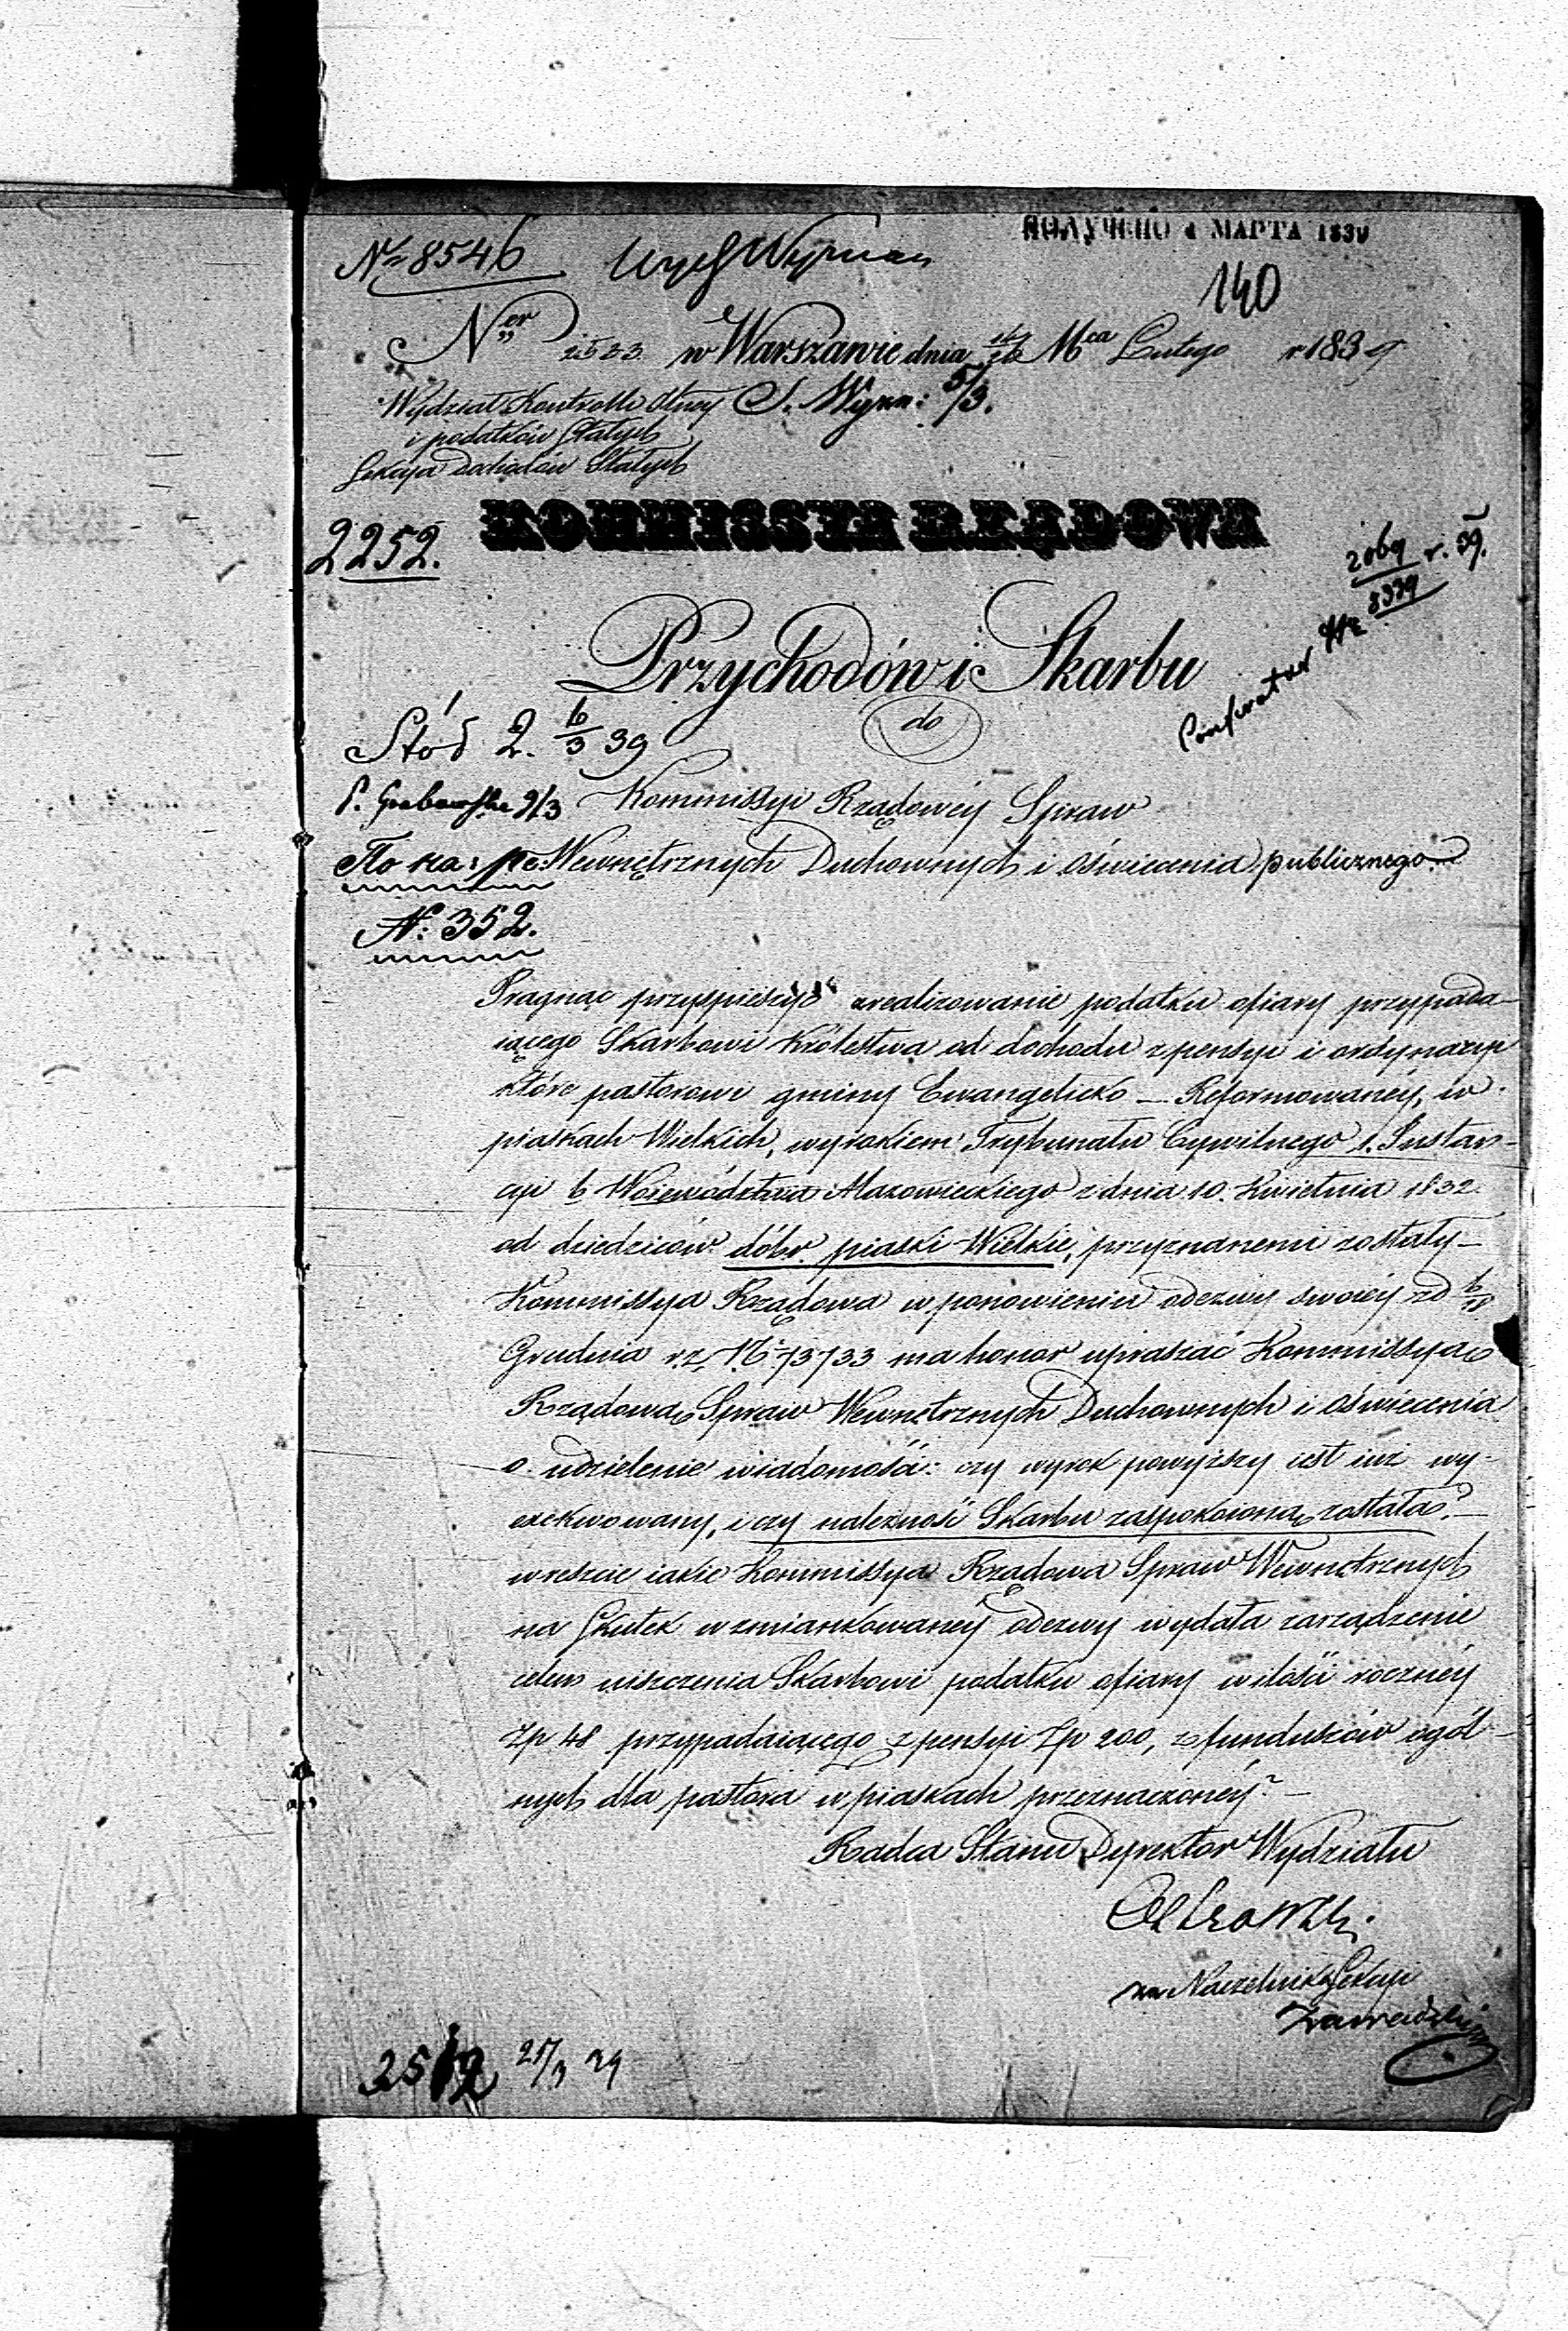 ПОЛУЧЕНО 4 МАРТА 1839
№ 8546
140
Ner 2533 w Warszawie dnia Mca Lutego r 1839
Wydział Kontrolli Olney S. Wyzn: 5/3.
i podatków Stałych
Sekcya Dochodów Stałych
2252.
KOMMISSYA RZĄDOWA
2069 r. 39.
8339
Przychodów i Skarbu
do
Stód 2. 6/3 39
P. Grabowski 9/3
Kommissyi Rządowéy Spraw
Wewnętrznych Duchownych i Oświecenia publicznego
№: 352.
Pragnąc przyspieszyć zrealizowanie podatku ofiary przypada-
iącego Skarbowi Królestwa od dochodu z pensyi i ordynaryi
które pastorowi gminy Ewangelicko – Reformowanéy, w
piaskach Wielkich, wyrokiem Trybunału Cywilnego 1. Instan-
cyi b Woiewództwa Mazowieckiego z dnia 10. Kwietnia 1832.
od dziedziców dóbr piaski Wielkie, przyznanemi zostały –
Kommissya Rządowa w ponowieniu odezwy swoiéy zd 6/18
Grudnia r. z. № 73733 ma honor upraszać Kommissyą
Rządową Spraw Wewnętrznych Duchownych i Oświecenia
o udzielenie wiadomości: czy wyrok powyższy iest iuż wy-
exekwowany, i czy należność Skarbu zaspokoiona została? –
wreszcie iakie Kommissya Rządowa Spraw Wewnętrznych
na Skutek wzmiankowanéy odezwy wydała zarządzenie
celem uiszczenia Skarbowi podatku ofiary w ilości rocznéy
Zp 48 przypadaiącego z pensyi Zp 200, z funduszów ogól-
nych dla pastora w piaskach przeznaczonéy? –
Radca Stanu Dyrektor Wydziału
za Naczelnika Sekcyi
Zawadzki